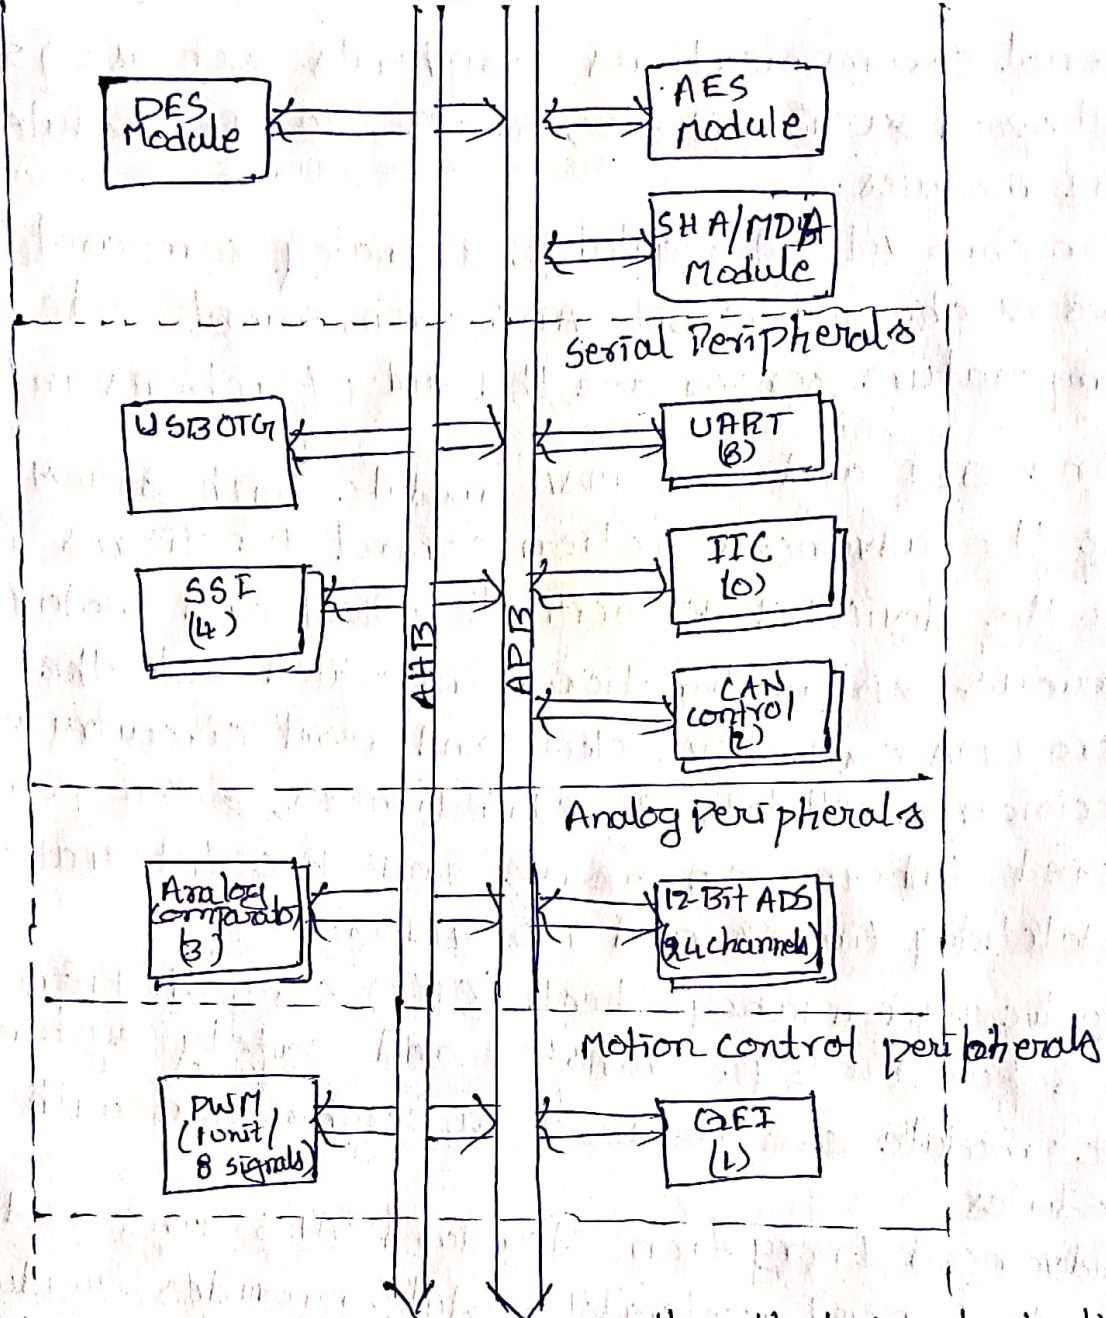 DES
Module
AES
Module
SHA/MD5
Module
Serial Peripherals
USB OTG
UART
(8)
SSI
(4)
IIC
(0)
AHB
APB
CAN
control
(2)
Analog Peripherals
Analog
comparato
(3)
12-Bit ADS
(24 channels)
Motion control peripherals
PWM
(1 unit/
8 signals)
QEI
(1)